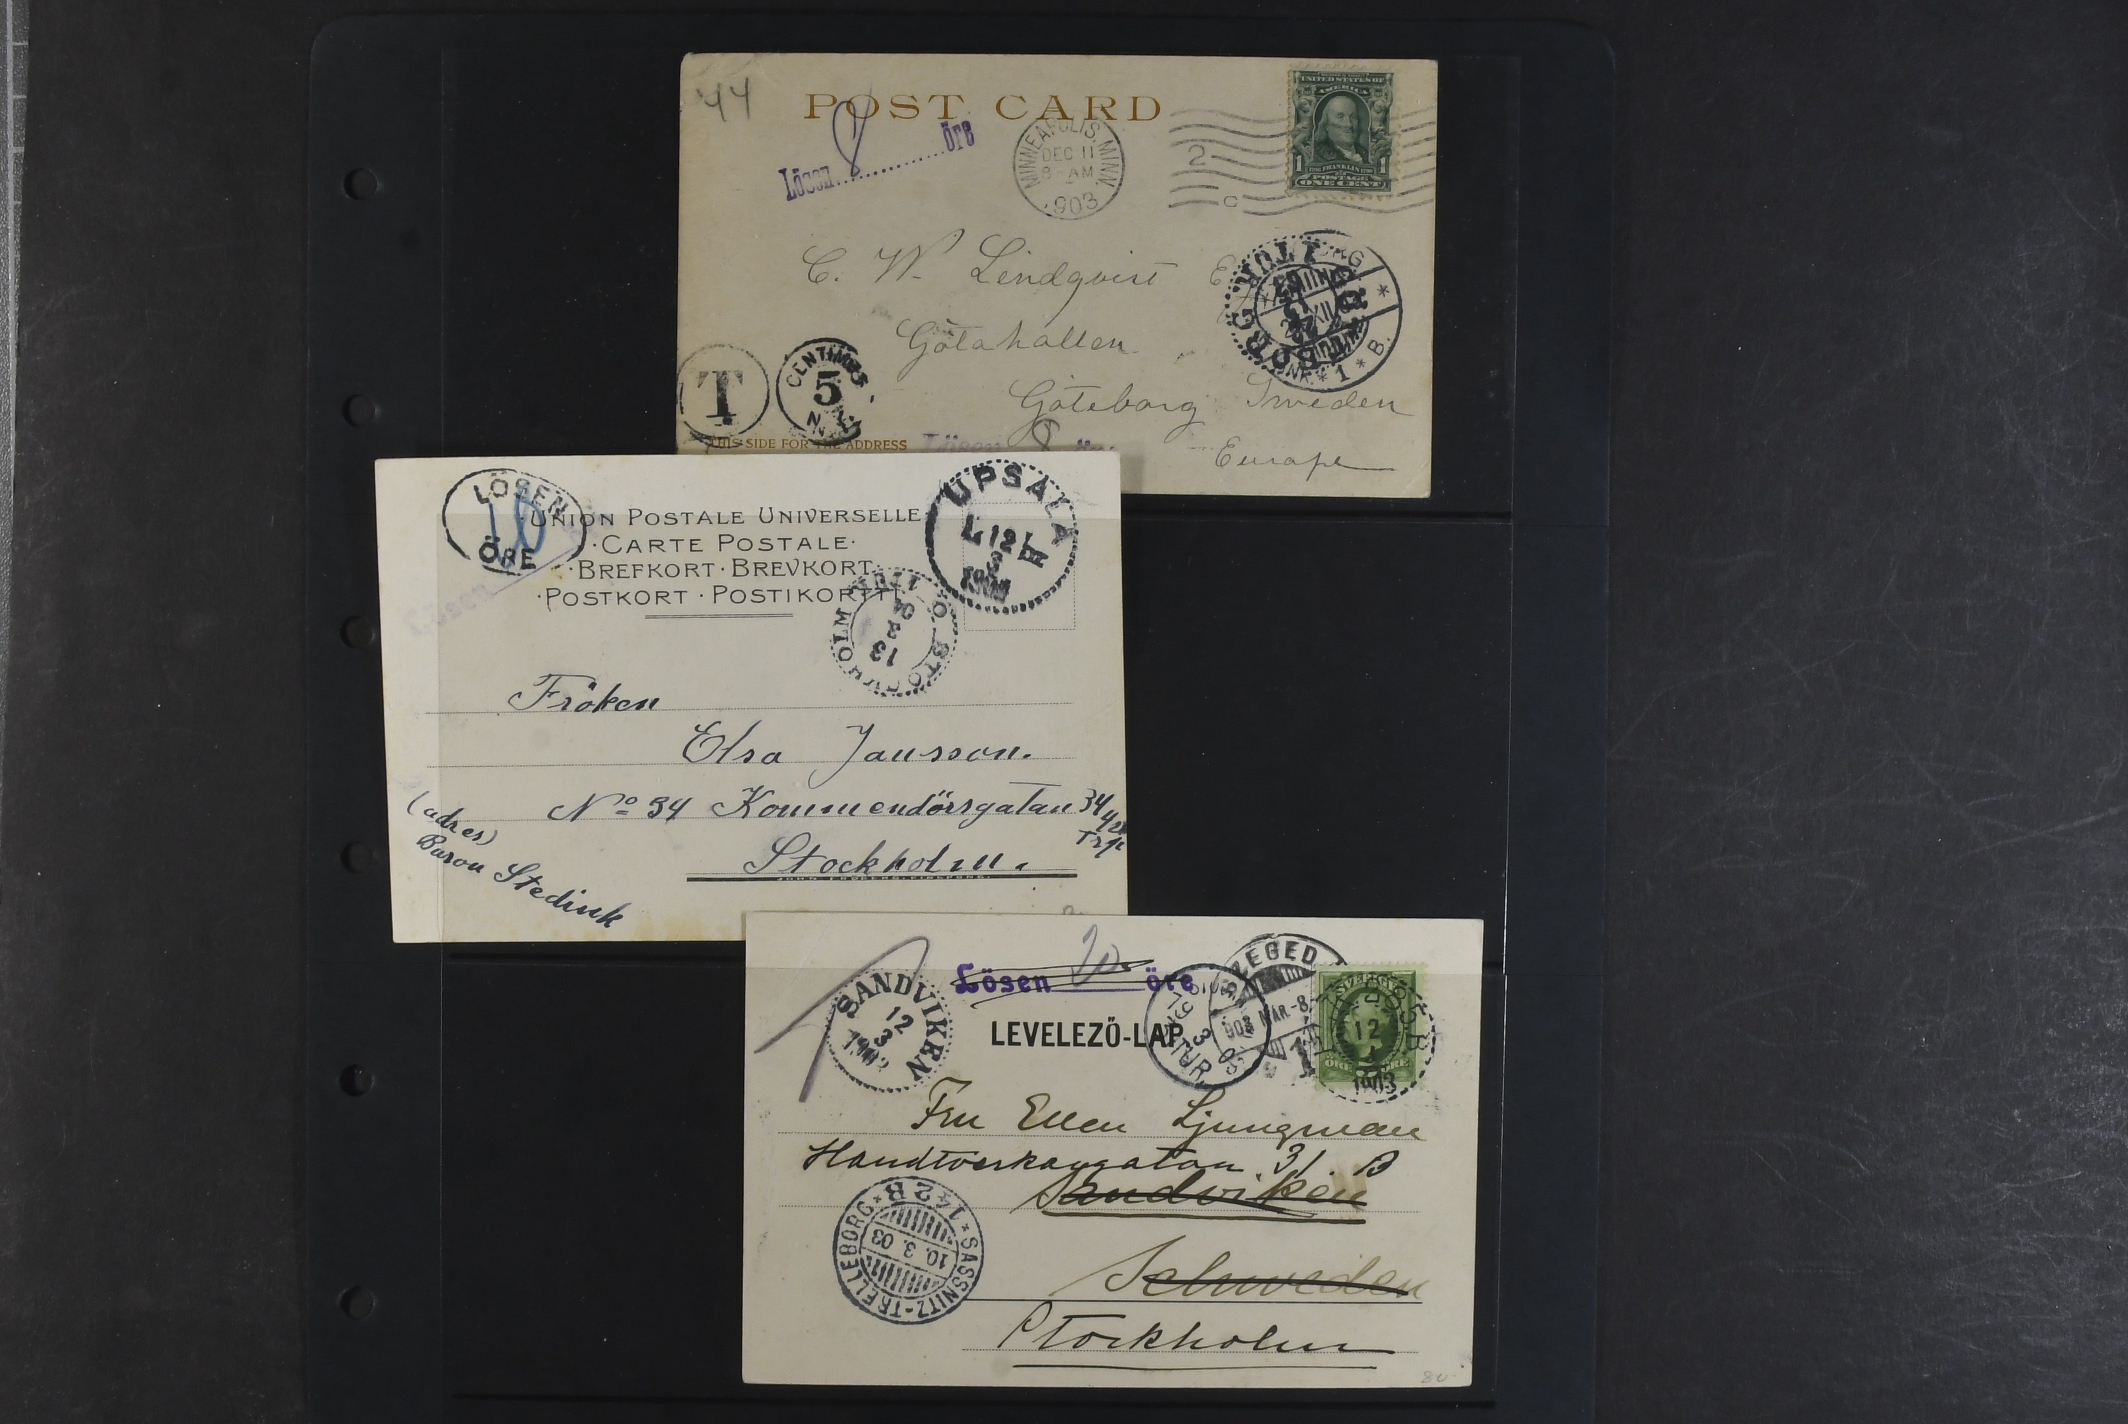 44
POST CARD
Lösen 8 öre
MINNEAPOLIS. MINN.
DEC 11
8 - AM
1903
2
C
UNITED STATES OF
AMERICA
1 FRANKLIN 1
POSTAGE
ONE CENT
C. W. Lindqvist
Götahallen
Göteborg Sweden
Europe
T
CENTIMES
5
N.Y.
THIS SIDE FOR THE ADDRESS
Lösen 8 öre
1 * B.
LÖSEN
10
ÖRE
UNION POSTALE UNIVERSELLE
·CARTE POSTALE·
·BREFKORT·BREVKORT
·POSTKORT·POSTIKORTTI
Lösen
UPSALA
12
3
13
3
Fröken
Elsa Jansson.
No 34 Kommendörsgatan 34
Stockholm.
(adres)
Baron Stedink
Lösen 20 öre
SZEGED
903 MAR.-8.
SANDVIKEN
12
3
LEVELEZŐ-LAP
12
1903
Fru Ellen Ljungman
Handtverkaregatan 31. B
Sandviken
Schweden
Stockholm
SASSNITZ-TRELLEBORG * 142 B *
10. 3. 03
80